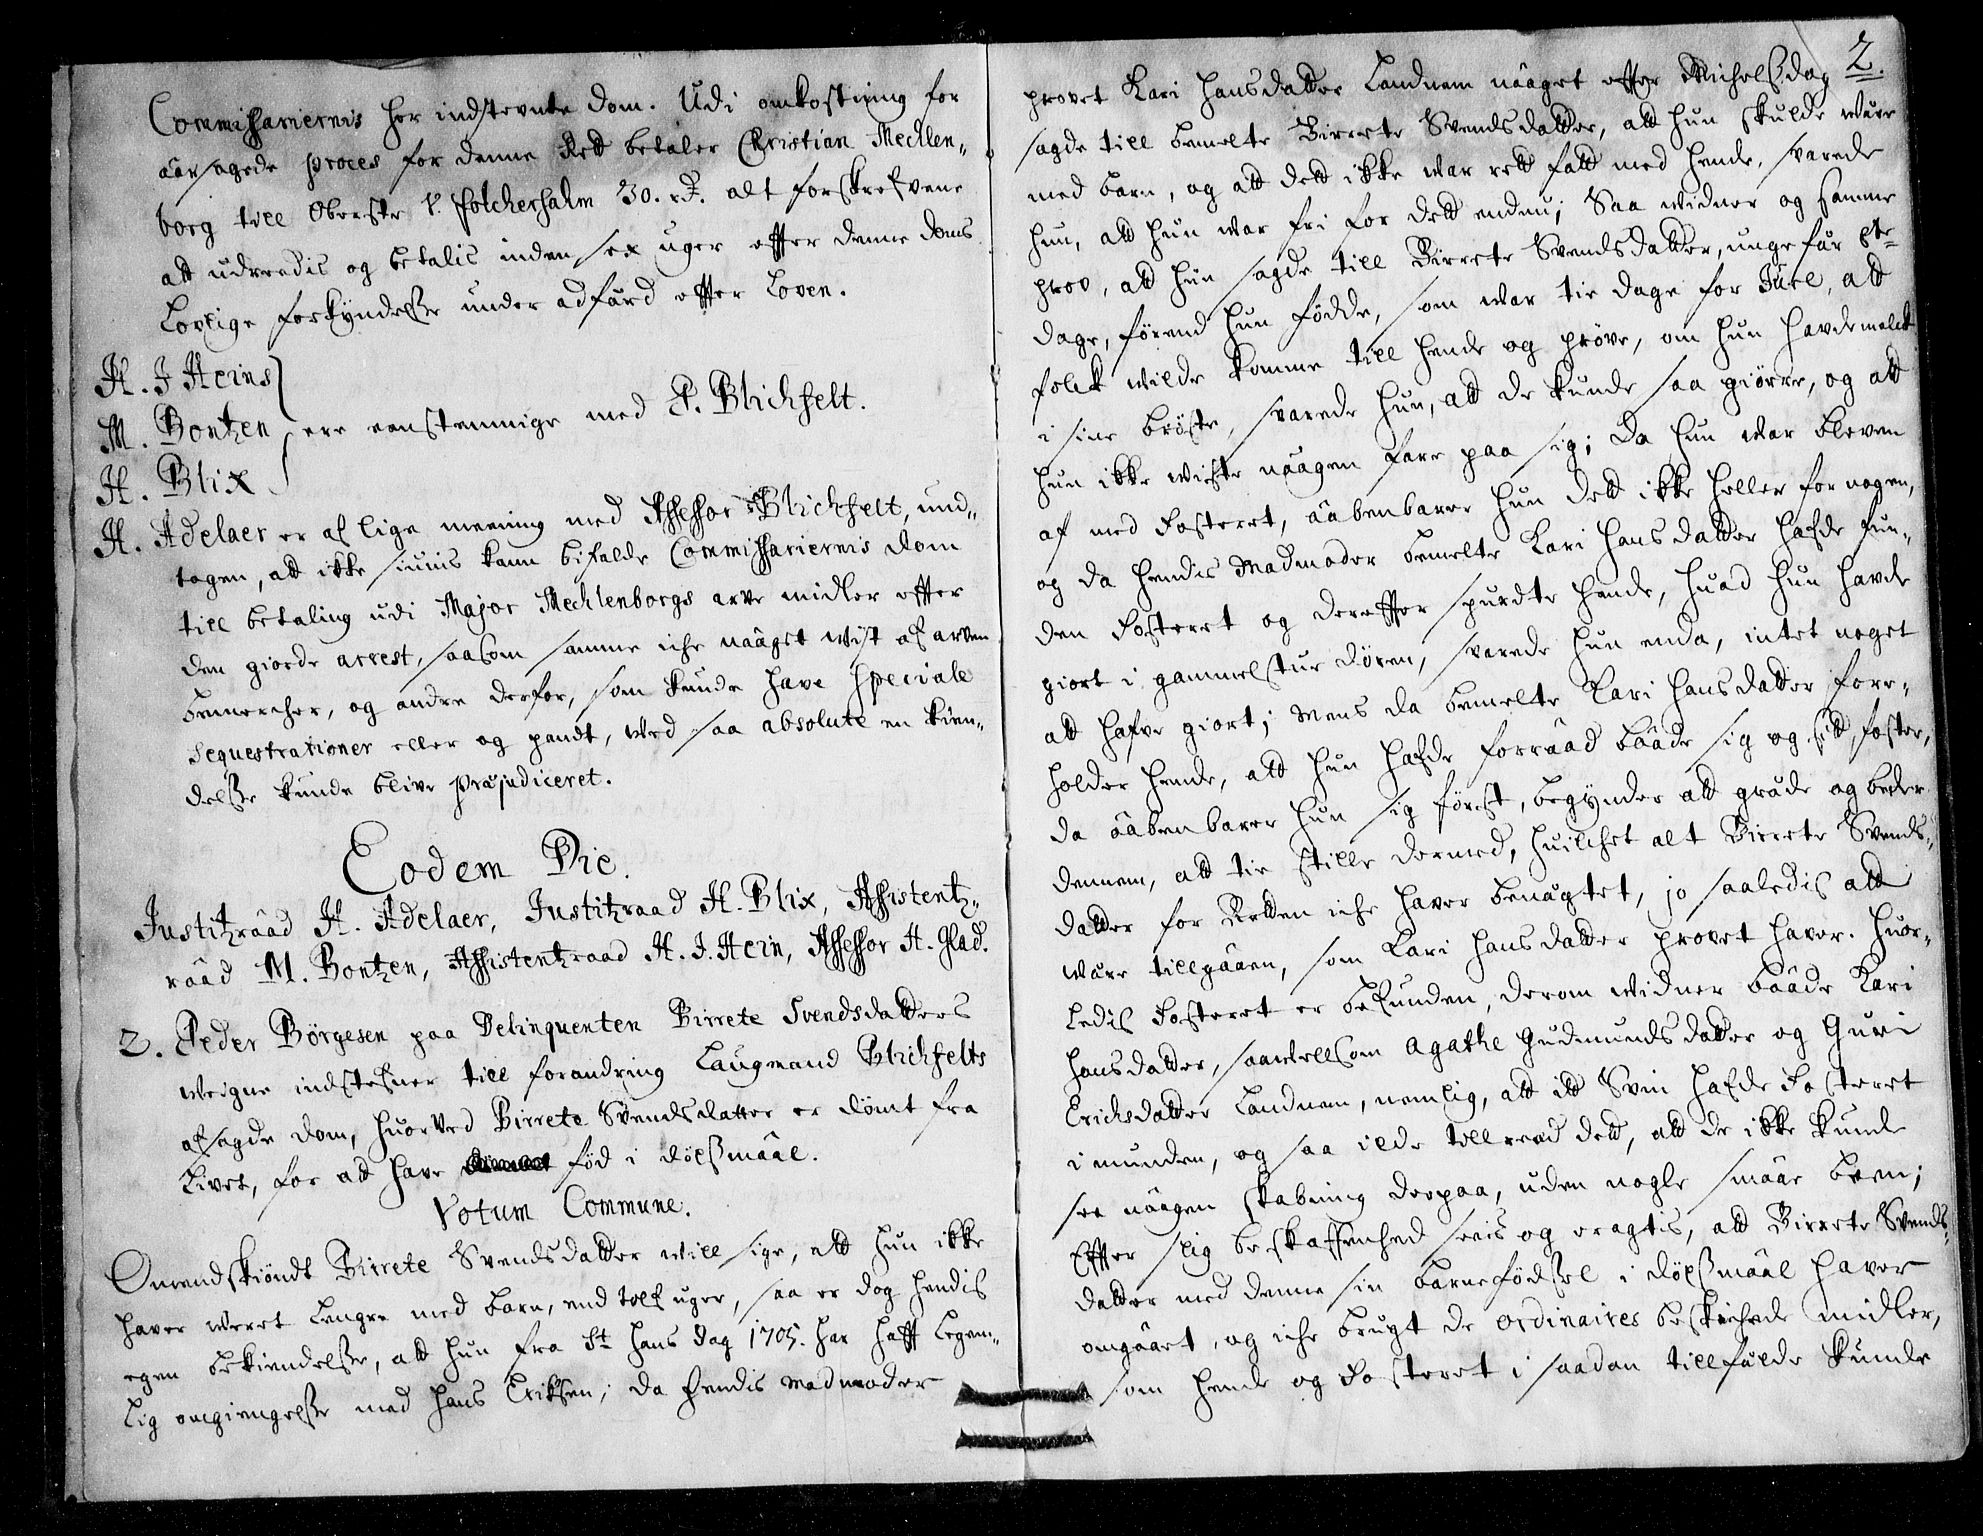 Commissariernis her indstevnte dom. Udi omkostning for
aarsagede proces for denne Rett betaler Christian Mechlen-
borg till Oberste v. Folchersalm 30. rd. alt forskrefvene
att udreedis og betalis inden sex uger effter denne doms
Lovlige forkyndelsse under adfærd effter Loven.
H. J Heins
M. Bontzen ere eenstemmige med P. Blichfelt.
H. Blix
H. Adelaer er af lige meening med Assessor Blichfelt, und-
tagen, att ikke siunis kann bifalde Commissariernis dom
till betaling udi Major Mechlenborgs arve midler effter
den giorde arrest, saasom samme iche naaget wist af arven
bemercher, og andre derfor, som kunde have speciale
Sequestrationer eller og pandt, ved saa absolute en kien-
delsse kunde blive præjudiceret.
Eodem Die.
Justitzraad H. Adelaer, Justitzraad H. Blix, Assistentz-
raad M. Bontzen, Assistentzraad H. J. Hein, Assessor H. Glad.
2. Peder Börgesen paa Delinquenten Birrete Svendsdatters
weigne indstefner till forandring Laugmand Blichfelts
afsagde dom, huorved Birrete Svendsdatter er dömt fra
Livet, for att have fød i dölssmaal.
Votum Commune.
Omendskiöndt Birrete Svendsdatter will sige, att hun ikke
haver weret lengre med barn, end tolf uger, saa er dog hendis
egen bekiendelsse, att hun fra St. Hans dag 1705. har hafft Legem-
lig omgiengelsse med Hans Eriksen; da hendis madmoder
2.
provet Kari Hansdatter Landnem naaget effter Michelsdag
sagde till bemelte Birrete Svendsdatter, att hun skulde wære
med barn, og att dett ikke war rett fatt med hende, svarede
hun, att hun war fri for dett endnu; Saa widner og samme
prov, att hun sagde till Birrete Svendsdatter, ungefær otte
dage, førend hun fødde, som war tie dage for Juel, att
folck wilde komme till hende og pröve, om hun havde melck
i sine bröste, svarede hun, att de kunde saa giörre, og att
hun ikke wiste naagen fare paa sig; Da hun war bleven
af med Fosteret, aabenbarer hun dett ikke heller for nogen,
og da hendis Madmoder bemelte Kari Hansdatter hafde fun-
den Fosteret og dereffter spurdte hende, huad hun havde
giort i gammelstue dören, svarede hun enda, intet noget
att hafve giort; Mens da bemelte Kari Hansdatter fore-
holder hende, att hun hafde forraad baade sig og sitt foster,
da aabenbarer hun sig først, begynder att græde og beder
dennem, att tie stille dermed, huilchet alt Birrete Svends-
datter for Retten iche haver benægtet, jo saaledis att
være tillgaaen, som Kari Hansdatter provet haver. Huor-
ledis Fosteret er befunden, derom widner baade Kari
Hansdatter, saavellsom Agathe Gudmundsdatter og Guri
Erichsdatter Landnem, nemlig, att itt Svin hafde Fosteret
i munden, og saa ilde tillreed dett, att de ikke kunde
see naagen skabning derpaa, uden nogle smaae been;
Effter slig beskaffenhed sees og eragtis, att Birrete Svends-
datter med denne sin barnefödsel i dölssmaal haver
omgaaet, og iche brugt de ordinaires beskichede midler,
som hende og Fosteret i saadan tillfælde kunde